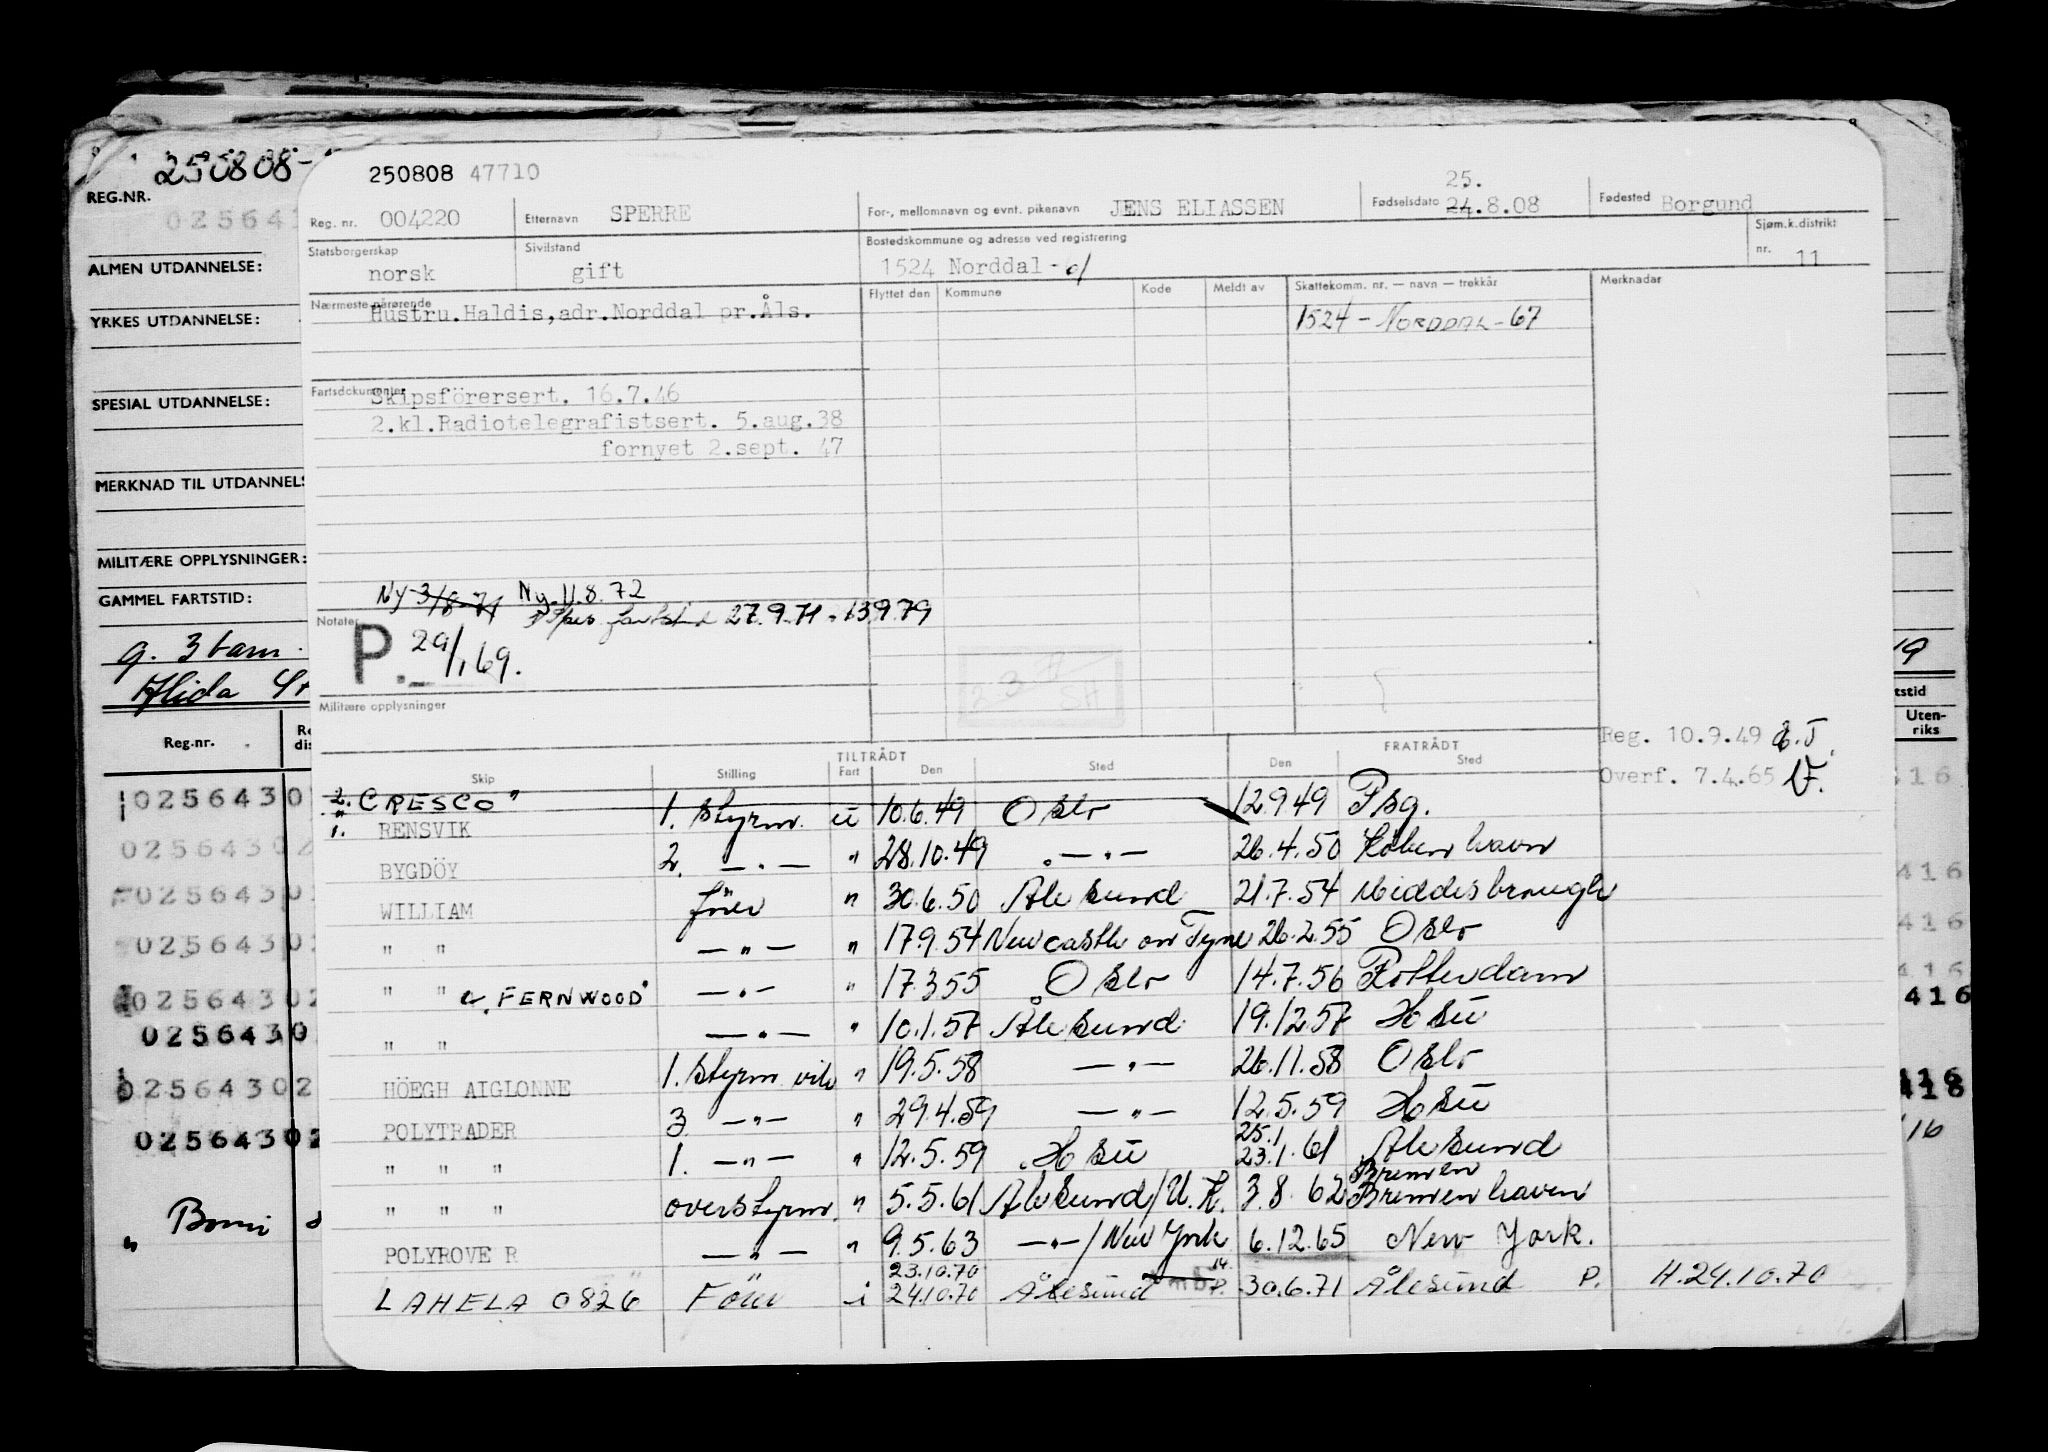 250808-
REG.NR.
025641
ALMEN UTDANNELSE:
YRKES UTDANNELSE:
SPESIAL UTDANNELSE:
MERKNAD TIL UTDANNELS
MILITÆRE OPPLYSNINGER:
GAMMEL FARTSTID:
g. 3 barn.
Reg.nr.
0256430
0256430
0256430
0256430
0256430
0256430
0256430
0256430
250808 47710
Reg. nr. 004220 Etternavn SPERRE For-, mellomnavn og evnt. pikenavn JENS ELIASSEN Fødselsdato 25. 24.8.08 Fødested Borgund
Statsborgerskap norsk Sivilstand gift Bostedskommune og adresse ved registrering 1524 Norddal Sjøm.k.distrikt nr. 11
Nærmeste pårørende Hustru.Haldis,adr.Norddal pr.Åls.
Flyttet den Kommune Kode Meldt av Skattekomm. nr. — navn — trekkår Merknader
1524 - NORDDAL - 67
Fartsdokumenter Skipsförersert. 16.7.46
2.kl.Radiotelegrafistsert. 5.aug.38
fornyet 2.sept. 47
Ny 3/8-71 Ny. 11.8.72
27.9.71 - 13979
Notater
P. 29/1 69.
Militære opplysninger
Reg. 10.9.49
Overf. 7.4.65
TILTRÅDT FRATRÅDT
Skip Stilling Fart Den Sted Den Sted
2. "CRESCO"
1. RENSVIK 1. styrm. u 10.6.49 Oslo 12.9.49 Psg.
BYGDÖY 2. — " — " 28.10.49 " — " — 26.4.50 Köbenhavn
WILLIAM förer " 30.6.50 Ålesund 21.7.54 Middesbrough
" " — " — " 17.9.54 Newcastle on Tyne 26.2.55 Oslo
" " "FERNWOOD" — " — " 17.3.55 Oslo 14.7.56 Rotterdam
" " — " — " 10.1.57 Ålesund 19.12.57 H su
HÖEGH AIGLONNE 1. styrm vik " 19.5.58 — " — 26.11.58 Oslo
POLYTRADER 3. — " — " 29.4.59 — " — 12.5.59 H su
" " " 1. — " — " 12.5.59 H su 25.1 23.1.61 Ålesund
" " " overstyrm. " 5.5.61 Ålesund/U.K. 3.8.62 Bremen Bremenhaven
POLYROVER — " — " 9.5.63 — " — / New York 6.12.65 New York.
LAHELA 0826 Förer i 23.10.70 24.10.70 Ålesund 30.6.71 Ålesund P. H.24.10.70
tstid
Uten-
riks
416
416
416
416
416
418